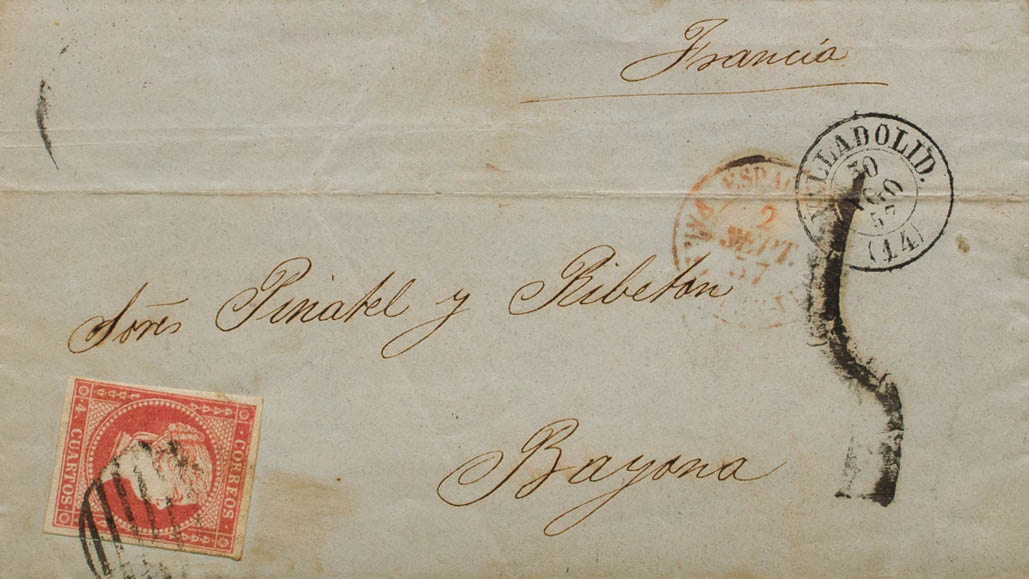 Francia
VALLADOLID.
30
AGO
57
(14)
ESPA
2
SEPT.
57
Sõres Pinatel y Ribeton
Bayona
4. CUARTOS
CORREOS